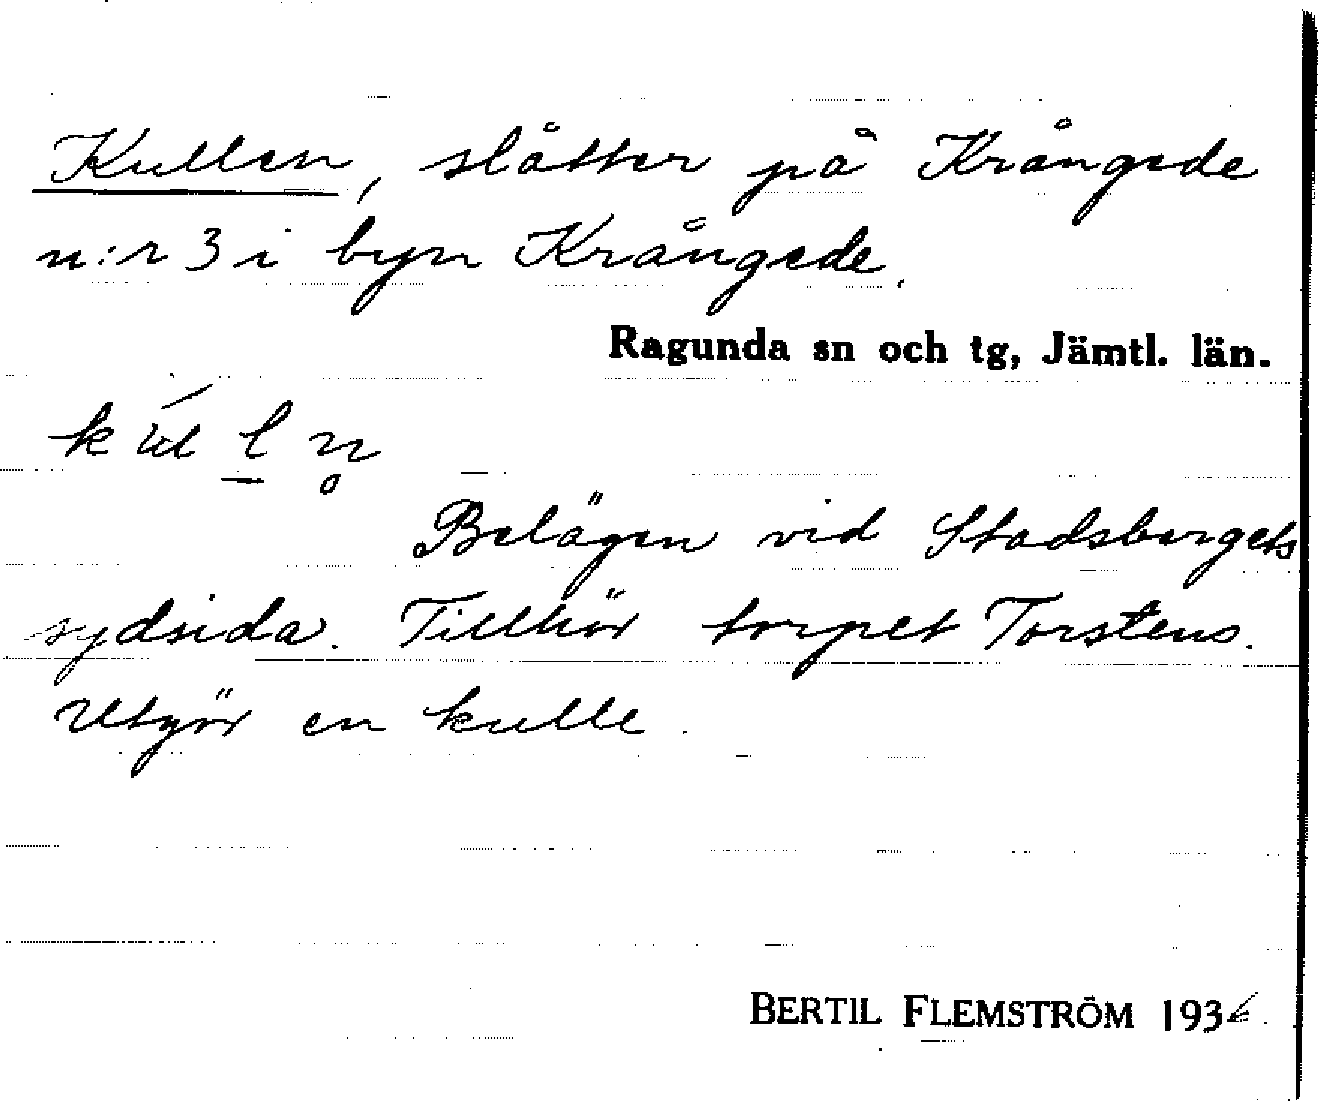 Kullen, slåtter på Krångede
n:r 3 i byn Krångede.
Ragunda sn och tg, Jämtl. län.
Belägen vid Stadsbergets
sydsida. Tillhör torpet Torstens.
Utgör en kulle.
BERTIL FLEMSTRÖM 1936.